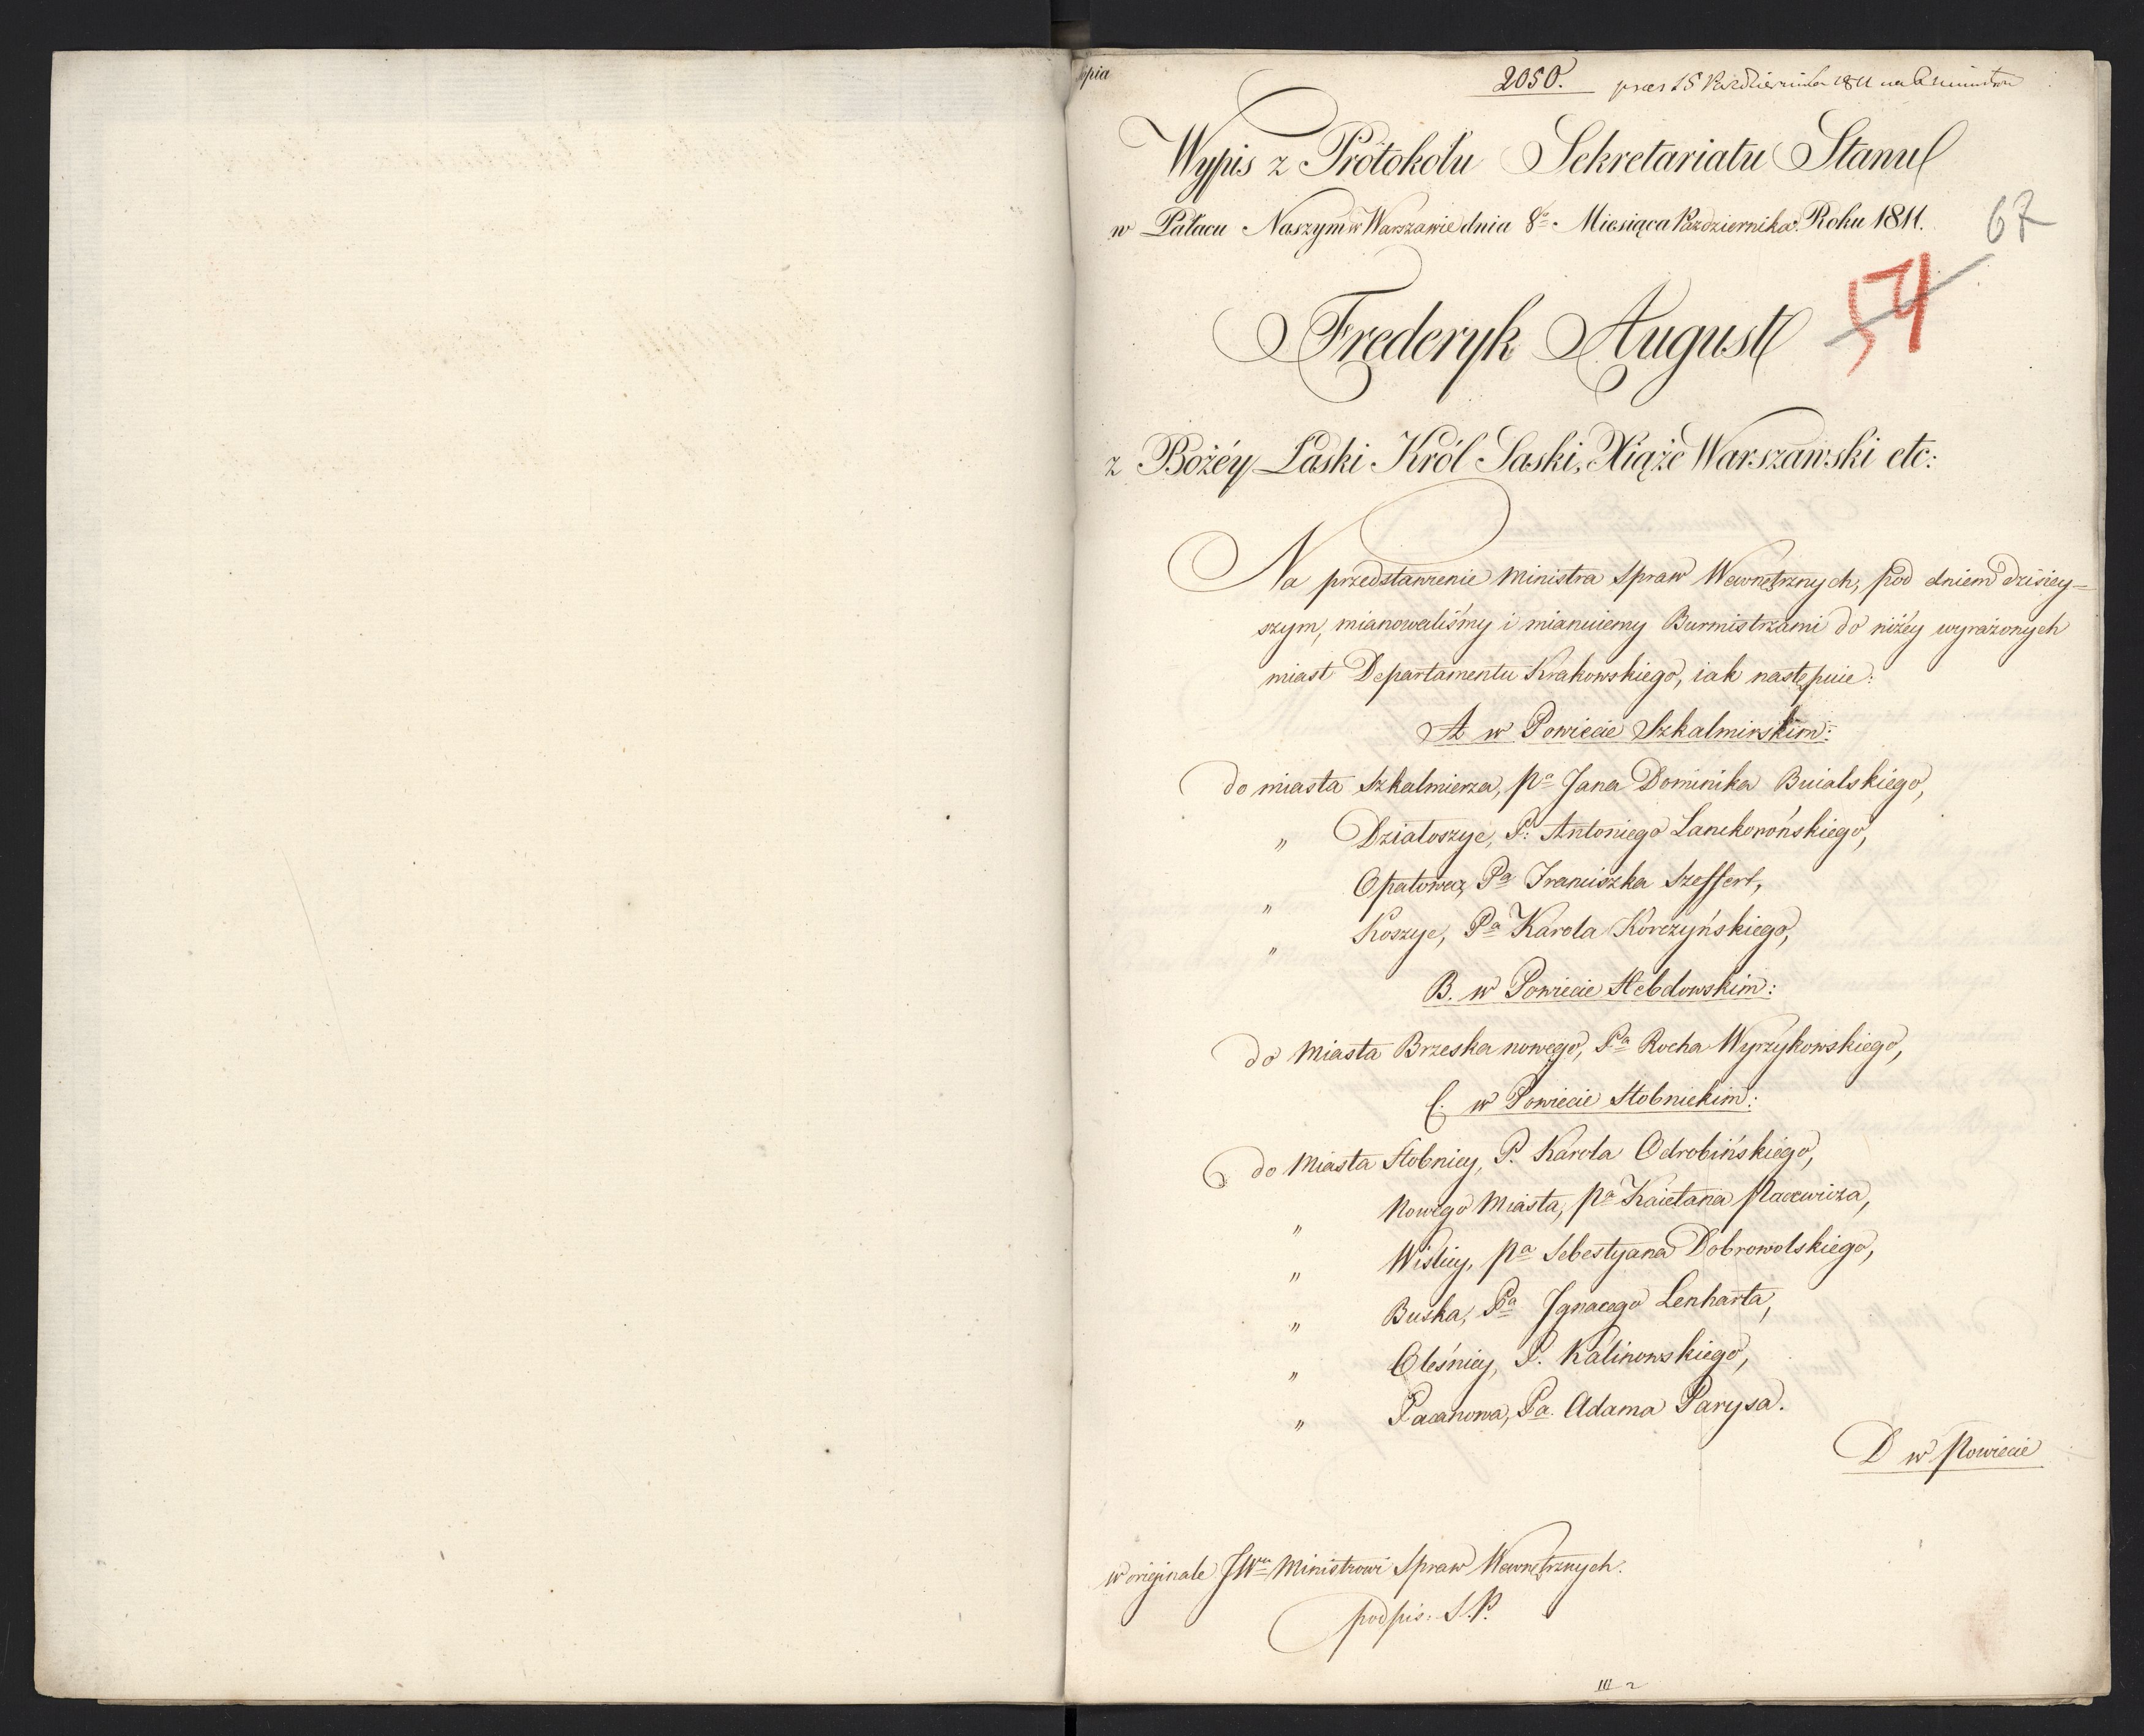 2050. præs 15 Października 1811 na
Wypis z Protokołu Sekretariatu Stanu
w Pałacu Naszym w Warszawie dnia 8º Miesiąca Października Roku 1811.
67
54
Frederyk August
z Bożéy Łaski Król Saski, Xiąże Warszawski etc:
Na przedstawienie Ministra Spraw Wewnętrznych, pod dniem dzisiey-
szym, mianowaliśmy i mianuiemy Burmistrzami do niżey wyrażonych
miast Departamentu Krakowskiego, iak następuie:
A w Powiecie Szkalmirskim:
do miasta Szkalmierza, Pa Jana Dominika Buialskiego,
" Działoszyc, P: Antoniego Lanckorońskiego,
" Opatowca, Pa Franciszka Szeffert,
" Koszyc, Pa Karola Korczyńskiego,
B. w Powiecie Hebdowskim:
do Miasta Brzeska nowego, Pa Rocha Wyrzykowskiego,
C. w Powiecie Stobnickim:
do Miasta Stobnicy, P. Karola Odrobińskiego,
" Nowego Miasta, Pa Kaietana Pacewicza,
" Wislicy, Pa Sebestyana Dobrowolskiego,
" Buska, Pa Ignacego Lenharta,
" Oleśnicy, P. Kalinowskiego,
" Pacanowa, Pa. Adama Parysa.
D w Powiecie
w originale JWu Ministrowi Spraw Wewnętrznych.
podpis: S.P.
III 2